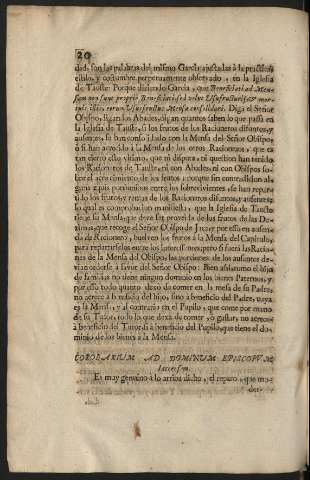 20
dad, son las palabras del mismo Garcia ajustadas à la practica
estilo, y costumbre perpetuamente observado, en la Iglesia
de Tauste: Porque diziendo Garcia, que Beneficiati ad Men-
sam non sunt proprie Beneficiati sed velut Usufructuarij &
illis, eorum Ususfructus Mensæ consolidatur. Diga el Señor
Obispo, digan los Abades, digan quantos saben lo que passa en
la Iglesia de Tauste, si los frutos de los Racioneros difuntos, y
ausentes, se han consolidado con la Mensa del Señor Obispo,
ò si han acrecido à la Mensa de los otros Racioneros, que es
tan cierto esto vltimo, que ni disputa, ni question han tenido
los Racioneros de Tauste, ni con Abades, ni con Obispos so-
bre el acrecimiento de los frutos; porque sin contradicion al-
guna à quis porcionibus entre los sobrevivientes, se han repar-
tido los frutos, y rentas de los Racioneros difuntos, y ausentes;
lo qual es comprobacion manifiesta, que la Iglesia de Tauste
tiene su Mensa, que deve ser proveìda de los frutos de las De-
zimas, que recoge el Señor Obispo de Jaca; y por esso en ausencia
de Racionero, buelven los frutos à la Mensa del Capitulo,
para repartirseles entre los interessentes; porque si fueran las Racio-
nes de la Mensa del Obispo, las porciones de los ausentes de-
vian cederse à favor del Señor Obispo. Bien assi, como el hijo
de familias no tiene ningun dominio en los bienes Paternos, y
por esso todo quanto dexò de comer en la mesa de su Padre,
no acrece à beneficio del hijo, sino à beneficio del Padre, cuya
es la Mensa, y al contrario en el Pupilo, que come por mano
de su Tutor, todo lo que dexa de comer, ò gastar, no acrece
à beneficio del Tutor, si à beneficio del Pupilo, que tiene el do-
minio de los bienes à la Mensa.
COROLARIUM AD DOMINUM EPISCOPUM
Iaccensem.
Es muy genuino à lo arriba dicho, el reparo, que mo-
der-